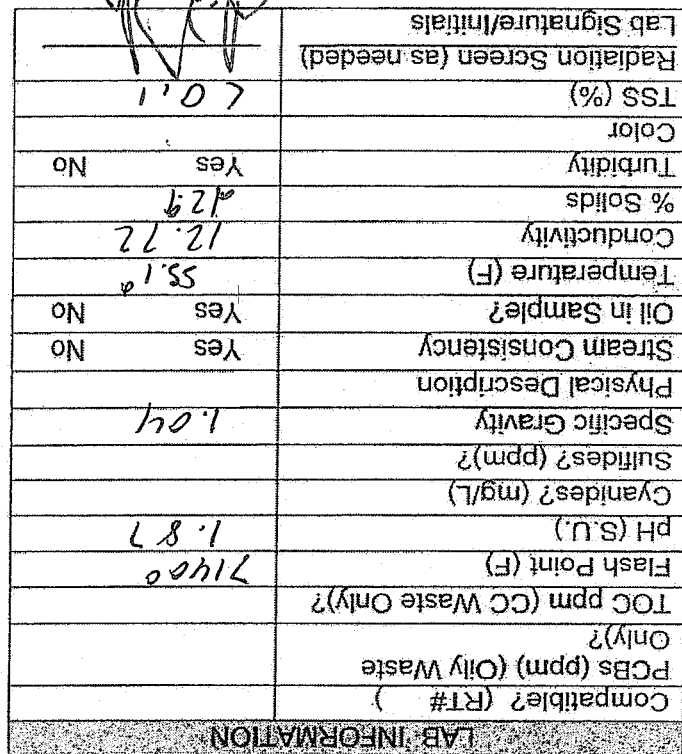 LAB INFORMATION
Compatible? (RT# )
PCBs (ppm) (Oily Waste
Only)?
TOC ppm (CC Waste Only)?
Flash Point (F) >140°
pH (S.U.) 1.87
Cyanides? (mg/L)
Sulfides? (ppm)?
Specific Gravity 1.04
Physical Description
Stream Consistency Yes No
Oil in Sample? Yes No
Temperature (F) 55.1°
Conductivity 12.72
% Solids
Turbidity Yes No
Color
TSS (%) <0.1
Radiation Screen (as needed)
Lab Signature/Initials